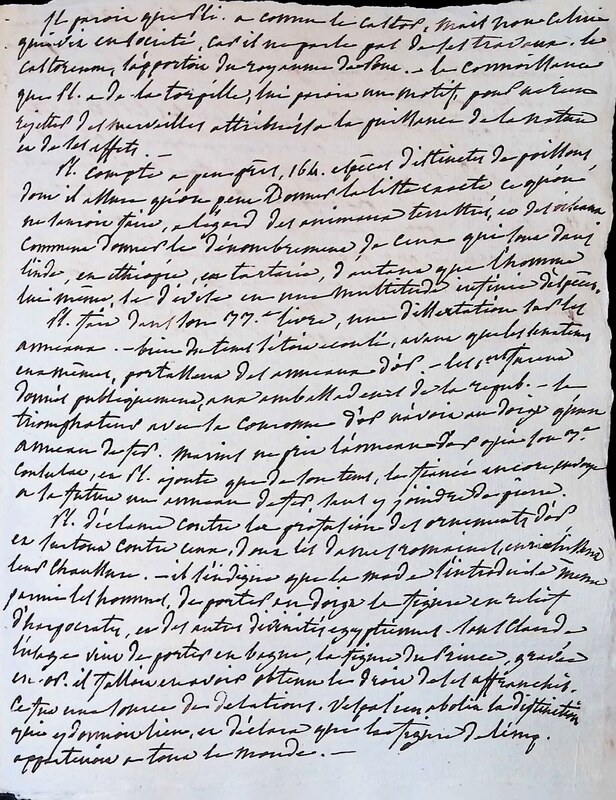 Il paroit que Pl. a connu le castor, mais non celui
qui vit en société, car il ne parle pas de ses travaux. le
castoreum, s'apportoit du royaume de Pont. — la connoissance
que Pl. a de la torpille, lui paroit un motif, pour ne rien
rejetter des merveilles attribuées a la puissance de la nature
et de ses effets.
Pl. compte a peu près, 164. especes distinctes de poissons,
dont il assure qu'on peut donner la liste exacte ce qu'on
ne sauroit faire, a l'égard des animaux terrestres, et des oiseaux
comment donner le denombrement de ceux qui sont dans
l'inde, en ethiopie, en tartarie, d'autant que l'homme
lui même, se divise en une multitude infinie d'especes.
Pl. fait dans son livre, une dissertation sur les
anneaux. — bien du tems s'étoit ecoulé, avant que les senateurs
eux mêmes, portassent des anneaux d'or. — les furent
donnés publiquement, aux ambassadeurs de la repub. — le
triomphateur avec la couronne d'or n'avoit au doigt qu'un
anneau de fer. Marius ne prit l'anneau d'or qu'a son 3.e
consulat, et Pl. ajoute que de son tems, le fiancé encore, envoye
a la future un anneau de fer sans y joindre de pierre.
Pl. déclame contre la profusion des ornements d'or
et surtout contre ceux, dont les dames romaines, enrichissent
leur chaussure. — il s'indigne que la mode s'introduise même
parmi les hommes, de porter au doigt la figure en relief
d'harpocrate, et des autres divinités egyptiennes. sous Claude
l'usage vint de porter en bague, la figure du Prince, gravée
en or. il falloit en avoir obtenu le droit de ses affranchis.
Ce fut une source de delations. Vespasien abolit la distinction
que y donnoit lieu, et déclara que la figure de l'emp.
appartenoit a tout le monde. —